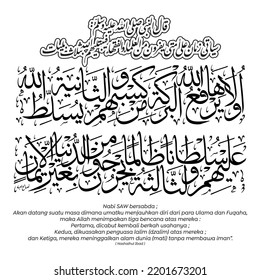 قال النبي صلى الله عليه وسلم
سيأتي زمان على أمتي يفرون من العلماء والفقهاء فيبتليهم الله بثلاث بليات
أولاها يرفع الله البركة من كسبهم والثانية يسلط الله
عليهم سلطانا ظالما والثالثة يخرجون من الدنيا بغير إيمان
Nabi SAW bersabda ;
Akan datang suatu masa dimana umatku menjauhkan diri dari para Ulama dan Fuqaha,
maka Allah menimpakan tiga bencana atas mereka :
Pertama, dicabut kembali berkah usahanya ;
Kedua, dikuasakan penguasa lalim (dzalim) atas mereka ;
dan Ketiga, mereka meninggalkan alam dunia (mati) tanpa membawa iman".
( Nashaihul Ibad )
shutterstock.com · 2201673201